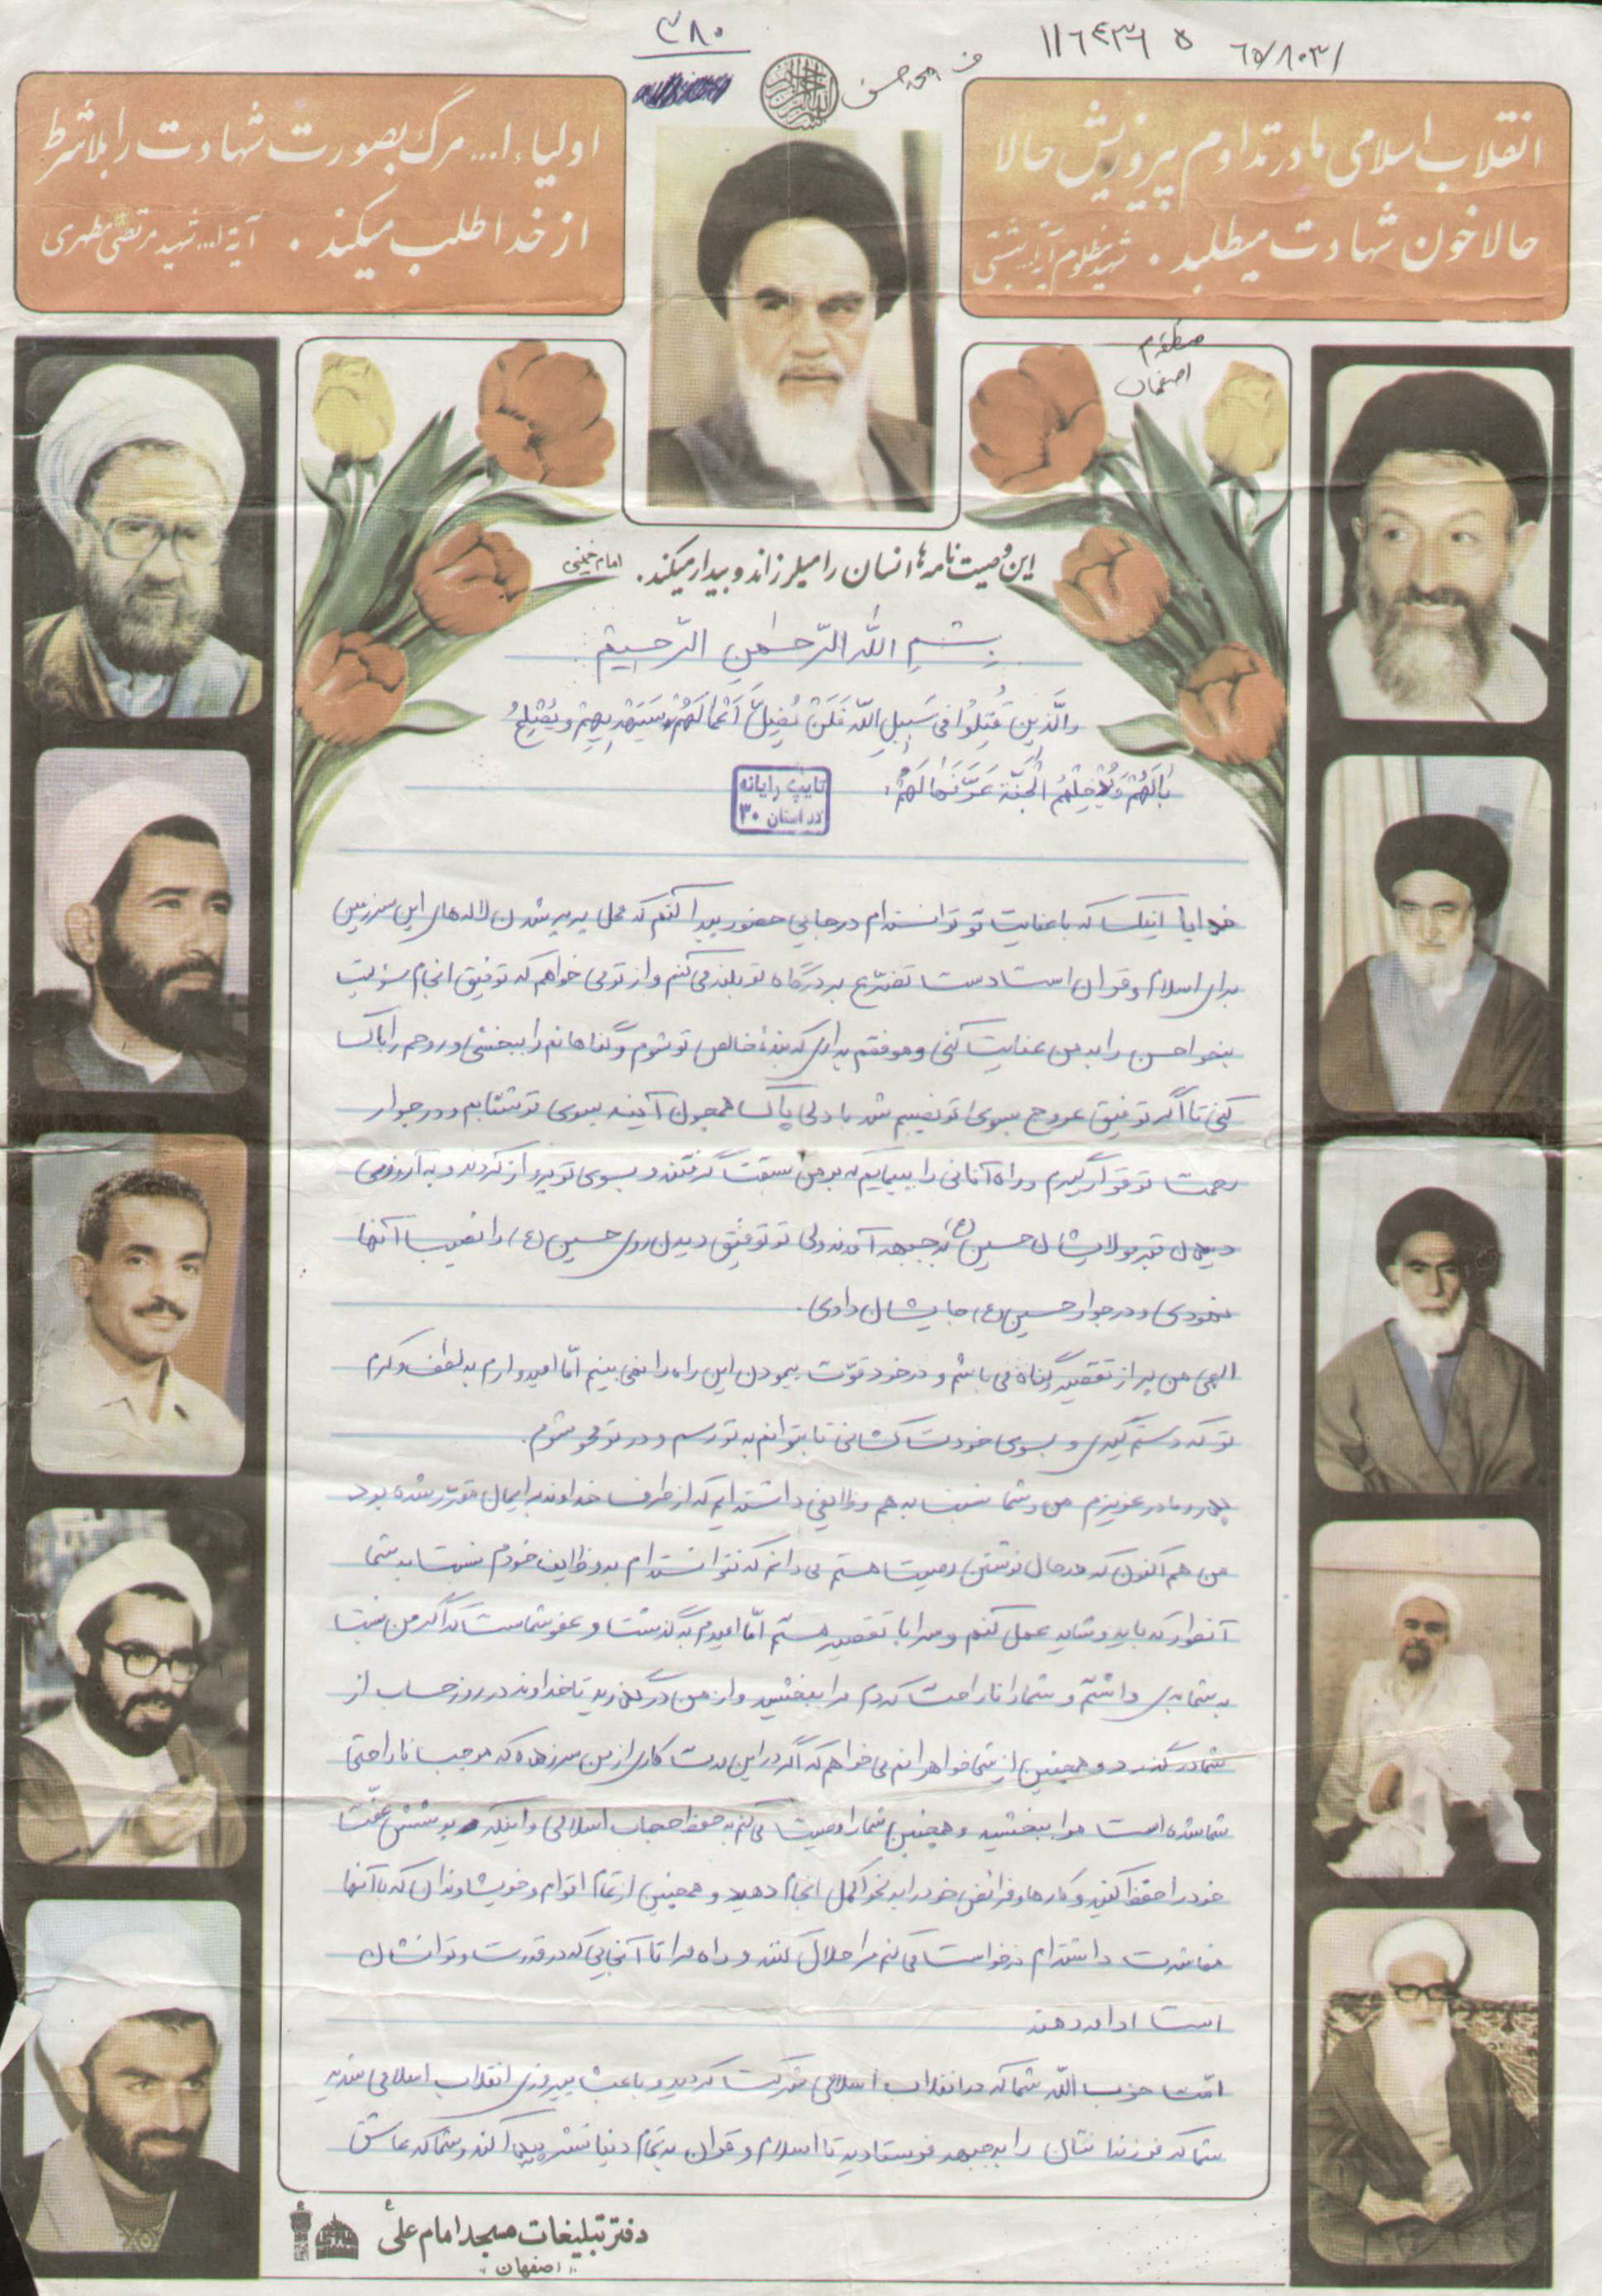 ۳۸۰
۱۱۶۴۳۶ ۵
۶۵/۸۰۳۱
انقلاب اسلامی ما در تداوم پیروزیش حالا
حالا خون شهادت میطلبد . شهید مظلوم آیة... بهشتی
اولیاء ا... مرگ بصورت شهادت را بلاشرط
از خدا طلب میکند . آیة ا... شهید مرتضی مطهری
اصفهان
این وصیت نامه ها انسان را میلرزاند و بیدار میکند. امام خمینی
بِسْمِ اللّهِ الرَّحمنِ الرَّحیم
والَّذینَ قُتِلُوا فی سَبیلِ اللّه فَلَن یُضِلَّ أَعْمالَهُمْ سَیَهْدِیهِمْ وَیُصْلِحُ
بالَهُمْ وَیُدْخِلُهُمُ الْجَنَّةَ عَرَّفَها لَهُمْ
تایپ رایانه
کد استان ۳۰
خدایا اینک که با عنایت تو توانسته‌ام در جایی حضور پیدا کنم که محل پرپر شدن لاله‌های این سرزمین
برای اسلام و قرآن است دست تضرّع به درگاه تو بلند می کنم و از تو می خواهم که توفیق انجام مسؤلیت
بنحو احسن را به من عنایت کنی و موفقم بداری که بندهٔ خالص تو شوم و گناهانم را ببخشی و روحم را پاک
کنی تا اگر توفیق عروج بسوی تو نصیبم شد با دلی پاک همچون آئینه بسوی تو بشتابم و در جوار
رحمت تو قرار گیرم و راه آنانی را بپیمایم که بر من سبقت گرفتند و بسوی تو پرواز کردند و به آرزوی
دیدن قبر مولایشان حسین (ع) به جبهه آمدند ولی تو توفیق دیدن روی حسین (ع) را نصیب آنها
نمودی و در جوار حسین (ع) جایشان دادی.
الهی من پر از تقصیر و گناه می باشم و در خود قوّت پیمودن این راه را نمی بینم امّا امیدوارم به لطف و کرم
تو که دستم گیری و بسوی خودت کشانی تا بتوانم به تو رسم و در تو محو شوم.
پدر و مادر عزیزم من و شما نسبت به هم وظایفی داشته ایم که از طرف خداوند برایمان مقرّر شده بود
من هم اکنون که در حال نوشتن وصیت هستم می دانم که نتوانسته‌ام به وظایف خودم نسبت به شما
آنطور که باید و شاید عمل کنم و سراپا تقصیر هستم امّا امیدم به گذشت و عفو شماست که اگر من نسبت
به شما بدی داشتم و شما را ناراحت کردم مرا ببخشید و از من درگذرید تا خداوند در روز حساب از
شما درگذرد و همچنین از شما خواهرانم می خواهم که اگر در این مدت کاری از من سرزده که موجب ناراحتی
شما شده است مرا ببخشید و همچنین شما را وصیت می کنم به حفظ حجاب اسلامی و اینکه پوشش عفّت
خود را حفظ کنید و کارها و فرائض خود را به نحو اکمل انجام دهید و همچنین از تمام اقوام و خویشاوندان که با آنها
معاشرت داشته‌ام درخواست می کنم مرا حلال کنند و راه مرا تا آنجایی که در قدرت و توانشان
است ادامه دهند
امّت حزب اللّه شما که در انقلاب اسلامی شرکت کردید و باعث پیروزی انقلاب اسلامی شدید
شما که فرزندانتان را به جبهه فرستادید تا اسلام و قرآن به تمام دنیا نشر پیدا کند و شما که عاشق
دفتر تبلیغات مسجد امام علی ع
اصفهان